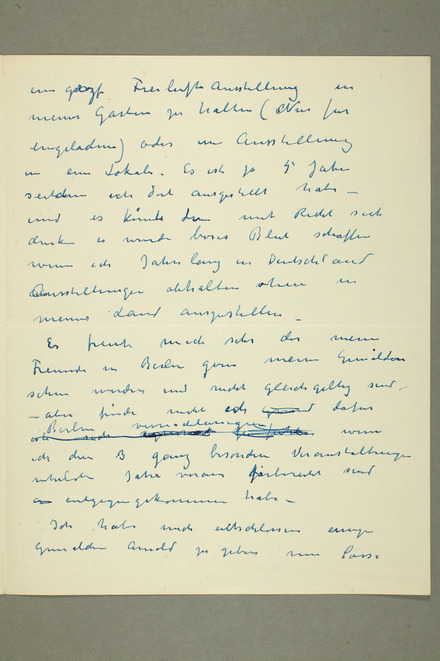 eine große Freiluft Ausstellung in
meinem Garten zu halten (Nur für
eingeladene) oder eine Ausstellung
in ein Lokale. Es ist ja 5 Jahre
seitdem ich dort ausgestellt habe –
und es könnte den mit Recht sich
denken es würde böses Blut schaffen
wenn ich Jahrelang in Deutschland
Ausstellungen abhalten ohne in
meines Land ausgestellen –
Es freute mich sehr das meine
Freunde in Berlin gern meine Gemälden
sehen werden und nicht gleichgültig sind –
– aber finde nicht ich dafür
Berlin vernachlässigen wenn
ich die 3 ganz besonders Veranstaltungen
Jahre voraus sind
entgegengekommen habe –
Ich habe mich entschlossen einige
Gemälden Arnold zu geben um